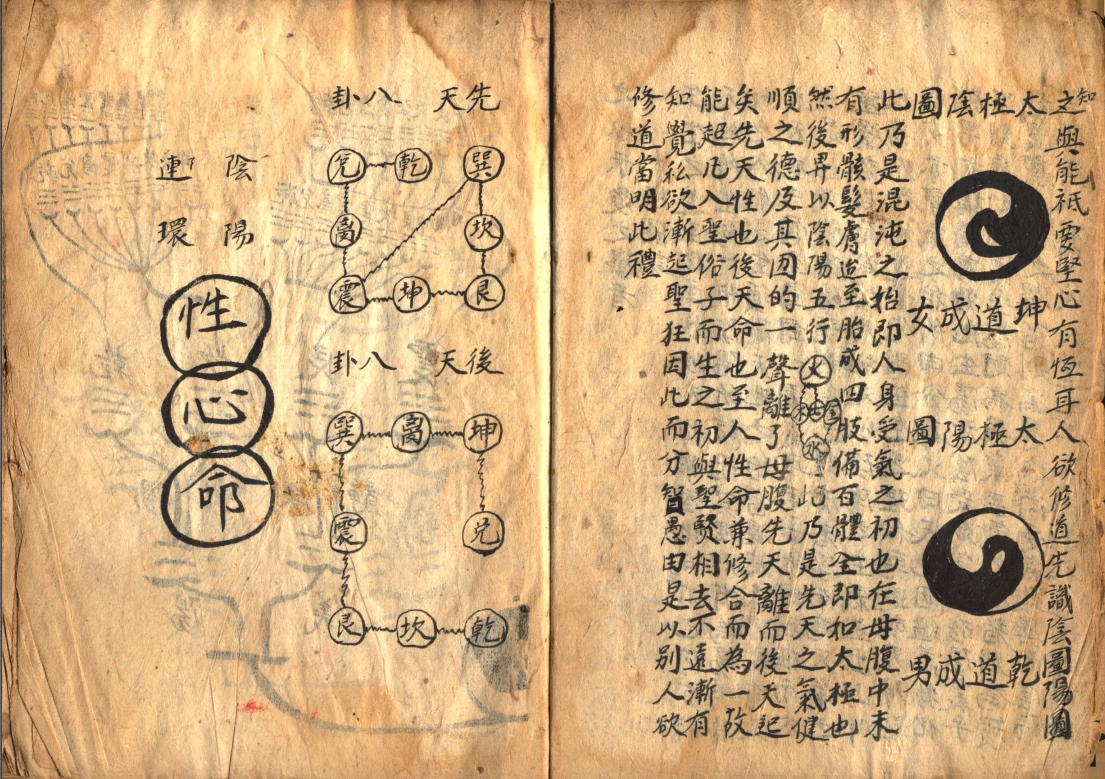 知之與能祇要堅心有恆耳人欲修道先識陰圖陽圖
太極陰圖
坤道成女
太極陽圖
乾道成男
此乃是混沌之始即人身受氣之初也在母腹中未
有形骸髮膚迨至胎成四肢備百體全即如太極也
然後畀以陰陽五行火木土金水此乃是先天之氣健
順之德及其囡的一聲離了母腹先天離而後天起
矣先天性也後天命也至人性命兼修合而為一故
能起凡入聖俗子而生之初與聖賢相去不遠漸有
知覺私欲漸起聖狂因此而分智愚由是以別人欲
修道當明此禮
先天八卦
巽
乾
兌
坎
離
艮
坤
震
後天八卦
坤
離
巽
兌
震
乾
坎
艮
陰陽
連環
性
心
命